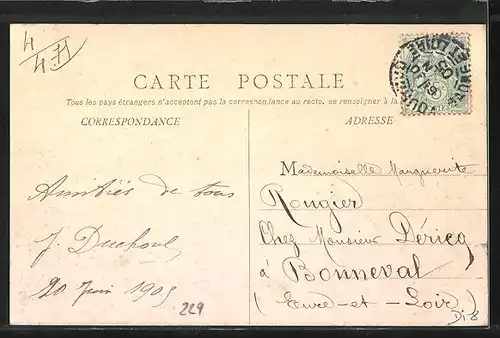 4
4 71
CARTE POSTALE
Tous les pays étrangers n'acceptent pas la correspondance au recto, se renseigner à la
CORRESPONDANCE
ADRESSE
Mademoiselle Marguerite
Rougier
Chez Monsieur Péricq
à Bonneval
(Eure-et-Loir)
Amitiés de tous
J. Duchoul,
20 Juin 1905
229